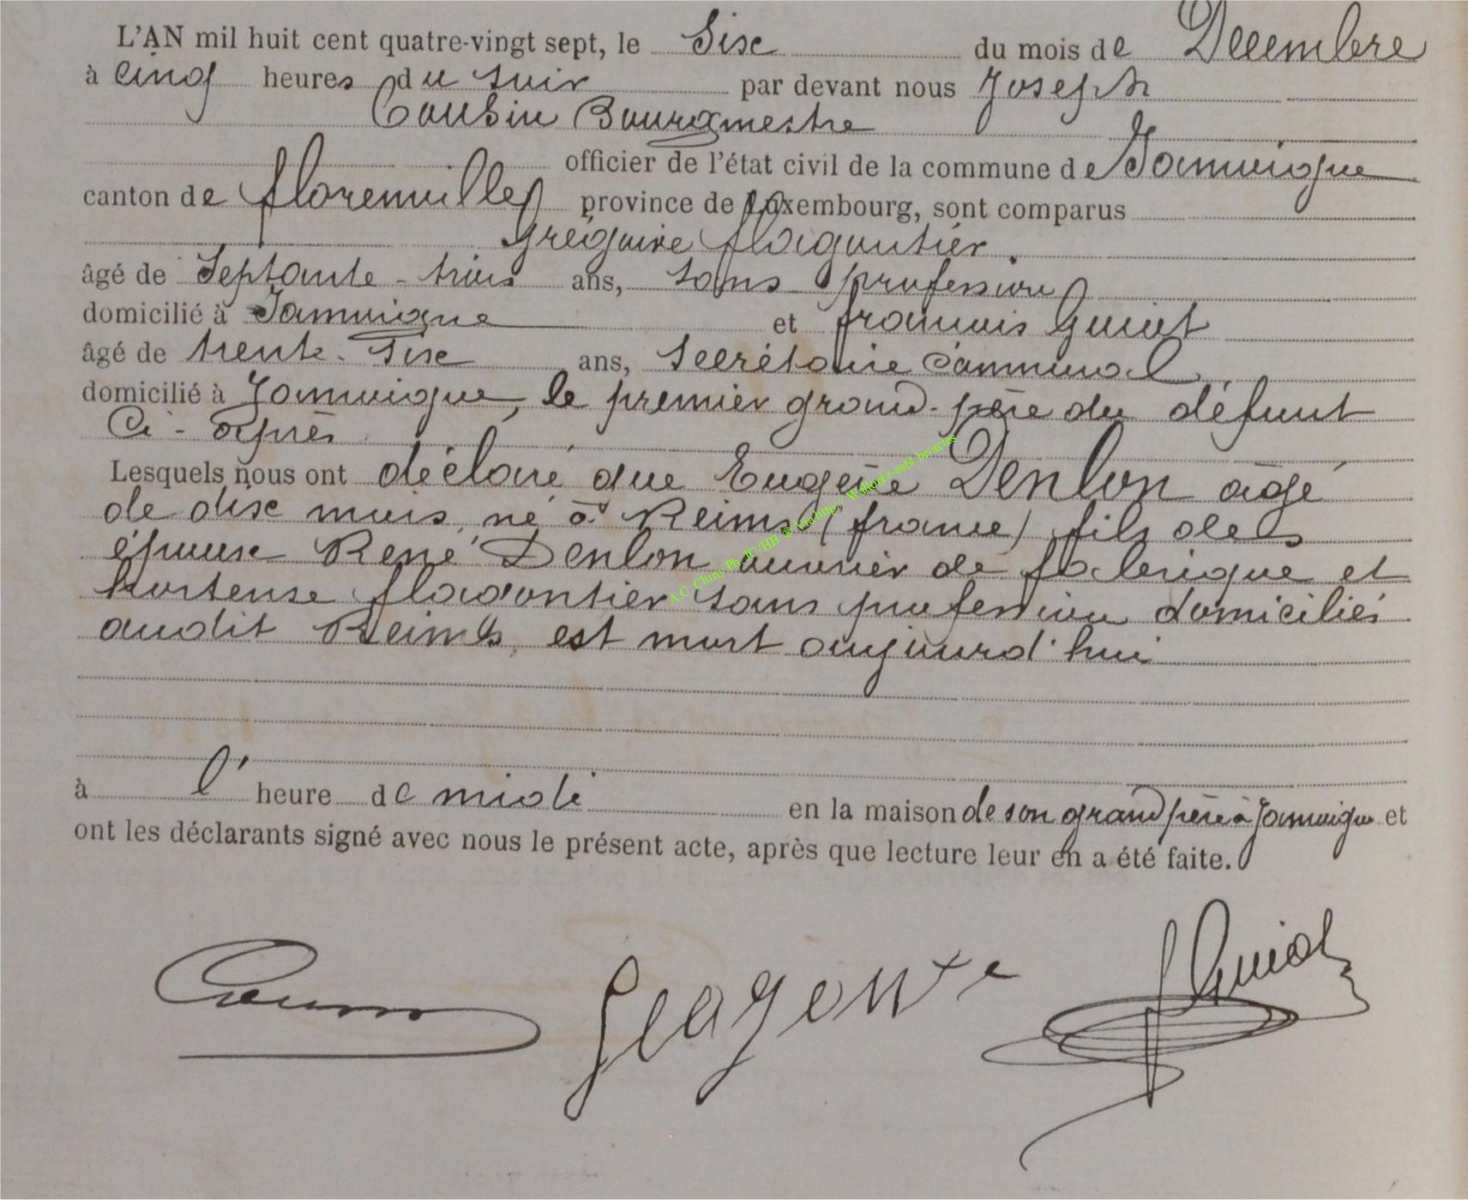 L'AN mil huit cent quatre-vingt sept, le Six du mois de Décembre
à cinq heures du soir par devant nous Joseph
Cousin Bourgmestre
officier de l'état civil de la commune de Jamoigne
canton de florenville province de Luxembourg, sont comparus
Grégoire flagontier
âgé de Septante-trois ans, sans profession
domicilié à Jamoigne et françois Guiot
âgé de trente-Six ans, Secrétaire Communal
domicilié à Jamoigne, le premier grand-père du défunt
Ci-après
Lesquels nous ont déclaré que Eugène Denlon agé
de dix mois, né à Reims (france) fils des
époux René Denlon ouvrier de fabrique et
hortense flagontier sans profession domiciliés
audit Reims, est mort aujourd'hui
à l' heure de midi en la maison de son grand père à Jamoigne et
ont les déclarants signé avec nous le présent acte, après que lecture leur en a été faite.
Cousin
f Guiot